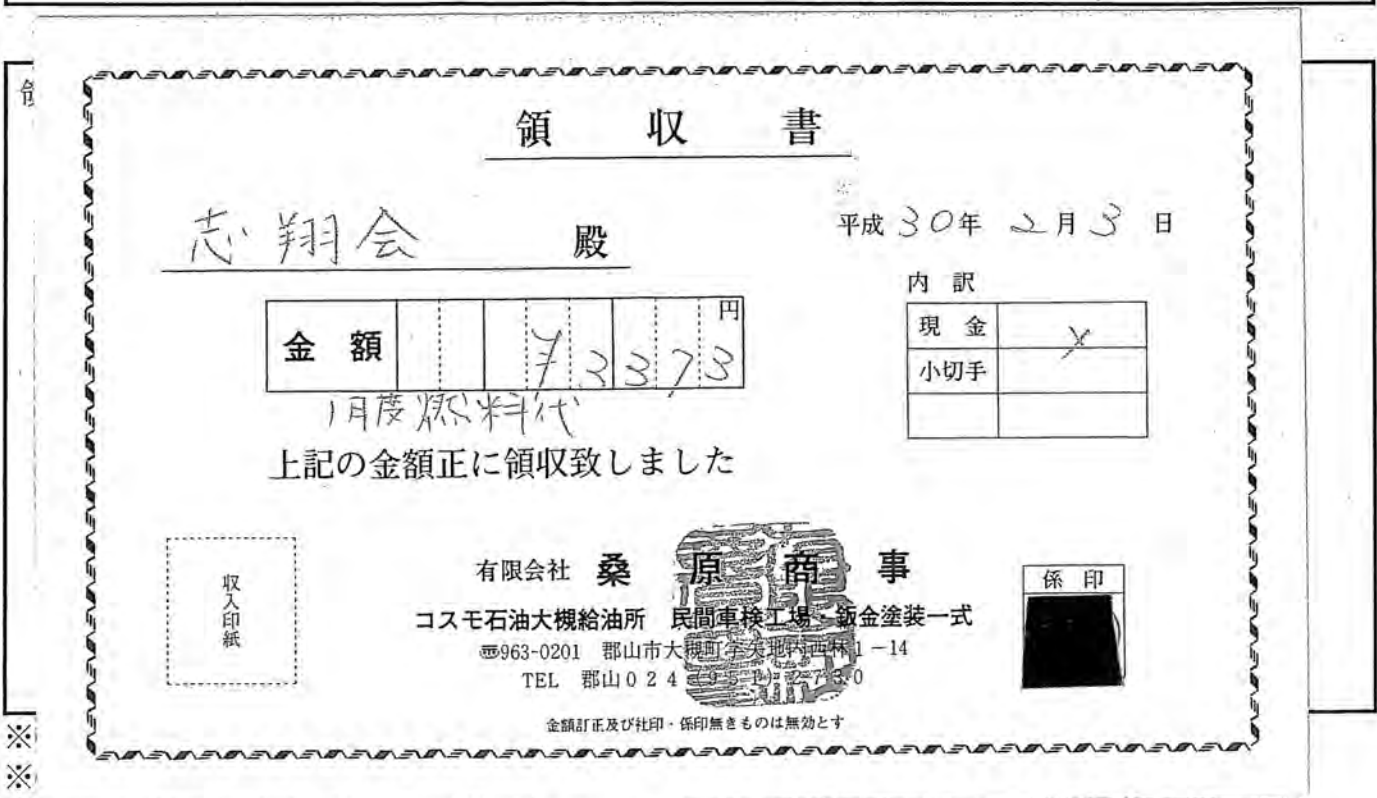 領収書
志翔会 殿
平成30年 2月3日
内訳
金額 ¥3373 円
現金
小切手
1月度燃料代
上記の金額正に領収致しました
収入印紙
有限会社 桑原商事
コスモ石油大槻給油所 民間車検工場・鈑金塗装一式
〒963-0201 郡山市大槻町字矢地内西林1-14
TEL 郡山024
係印
金額訂正及び社印・係印無きものは無効とす
※
※